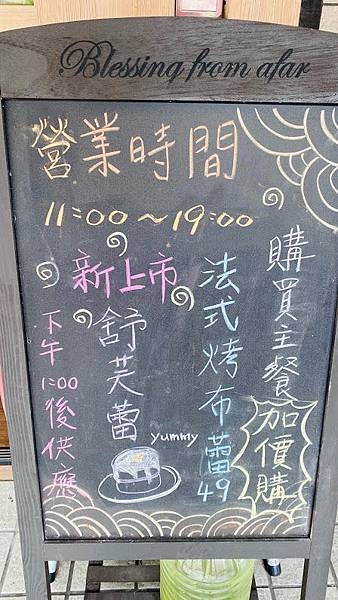 Blessing from afar
營業時間
11:00~19:00
購買主餐
加價購
法式烤布蕾49
新上市
舒芙蕾
下午1:00後供應
yummy